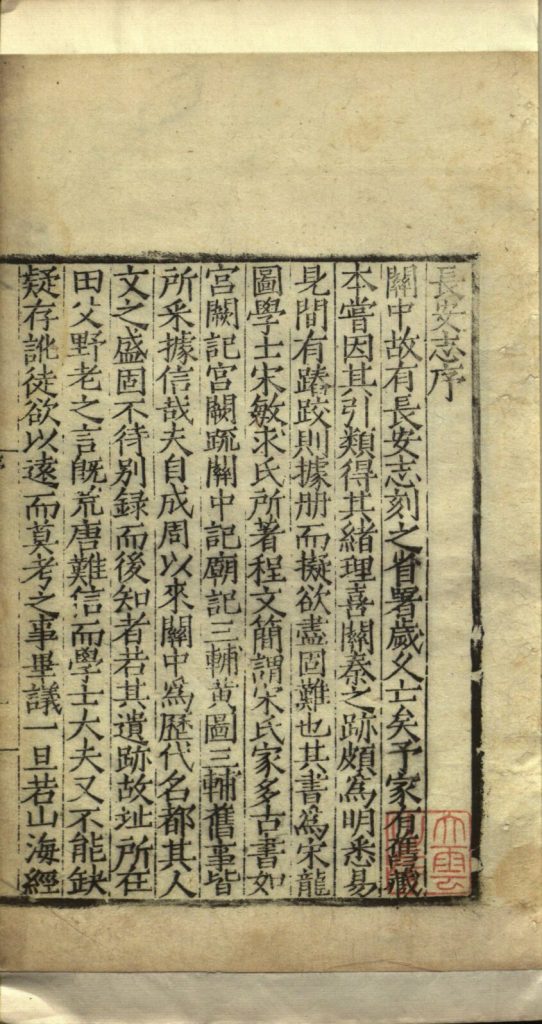 長安志序
關中故有長安志刻之省署歲久亡矣予家有舊藏
本嘗因其引類得其緒理喜關秦之跡頗為明悉易
見間有踳跤則據册而擬欲盡固難也其書為宋龍
圖學士宋敏求氏所著程文簡謂宋氏家多古書如
宮闕記宮闕疏關中記廟記三輔黃圖三輔舊事皆
所釆據信哉夫自成周以來關中為歷代名都其人
文之盛固不待別録而後知者若其遺跡故址所在
田父野老之言旣荒唐難信而學士大夫又不能缺
疑存訛徒欲以遠而莫考之事畢議一旦若山海經